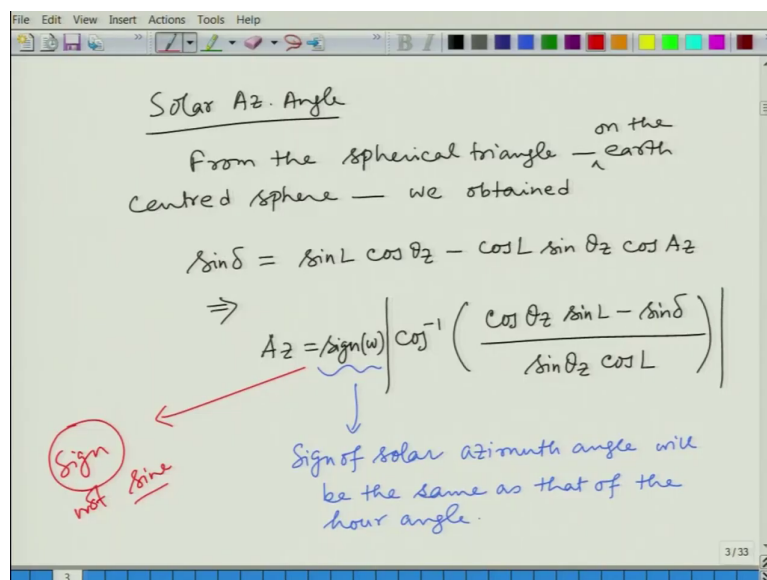 File Edit View Insert Actions Tools Help
B I
Solar Az. Angle
From the spherical triangle — on the earth
centred sphere — we obtained
sin δ = sin L cos θz − cos L sin θz cos Az
⇒
Az = sign(w) | cos⁻¹ ( (cos θz sin L − sin δ) / (sin θz cos L) ) |
Sign
not sine
Sign of solar azimuth angle will
be the same as that of the
hour angle.
3/33
3